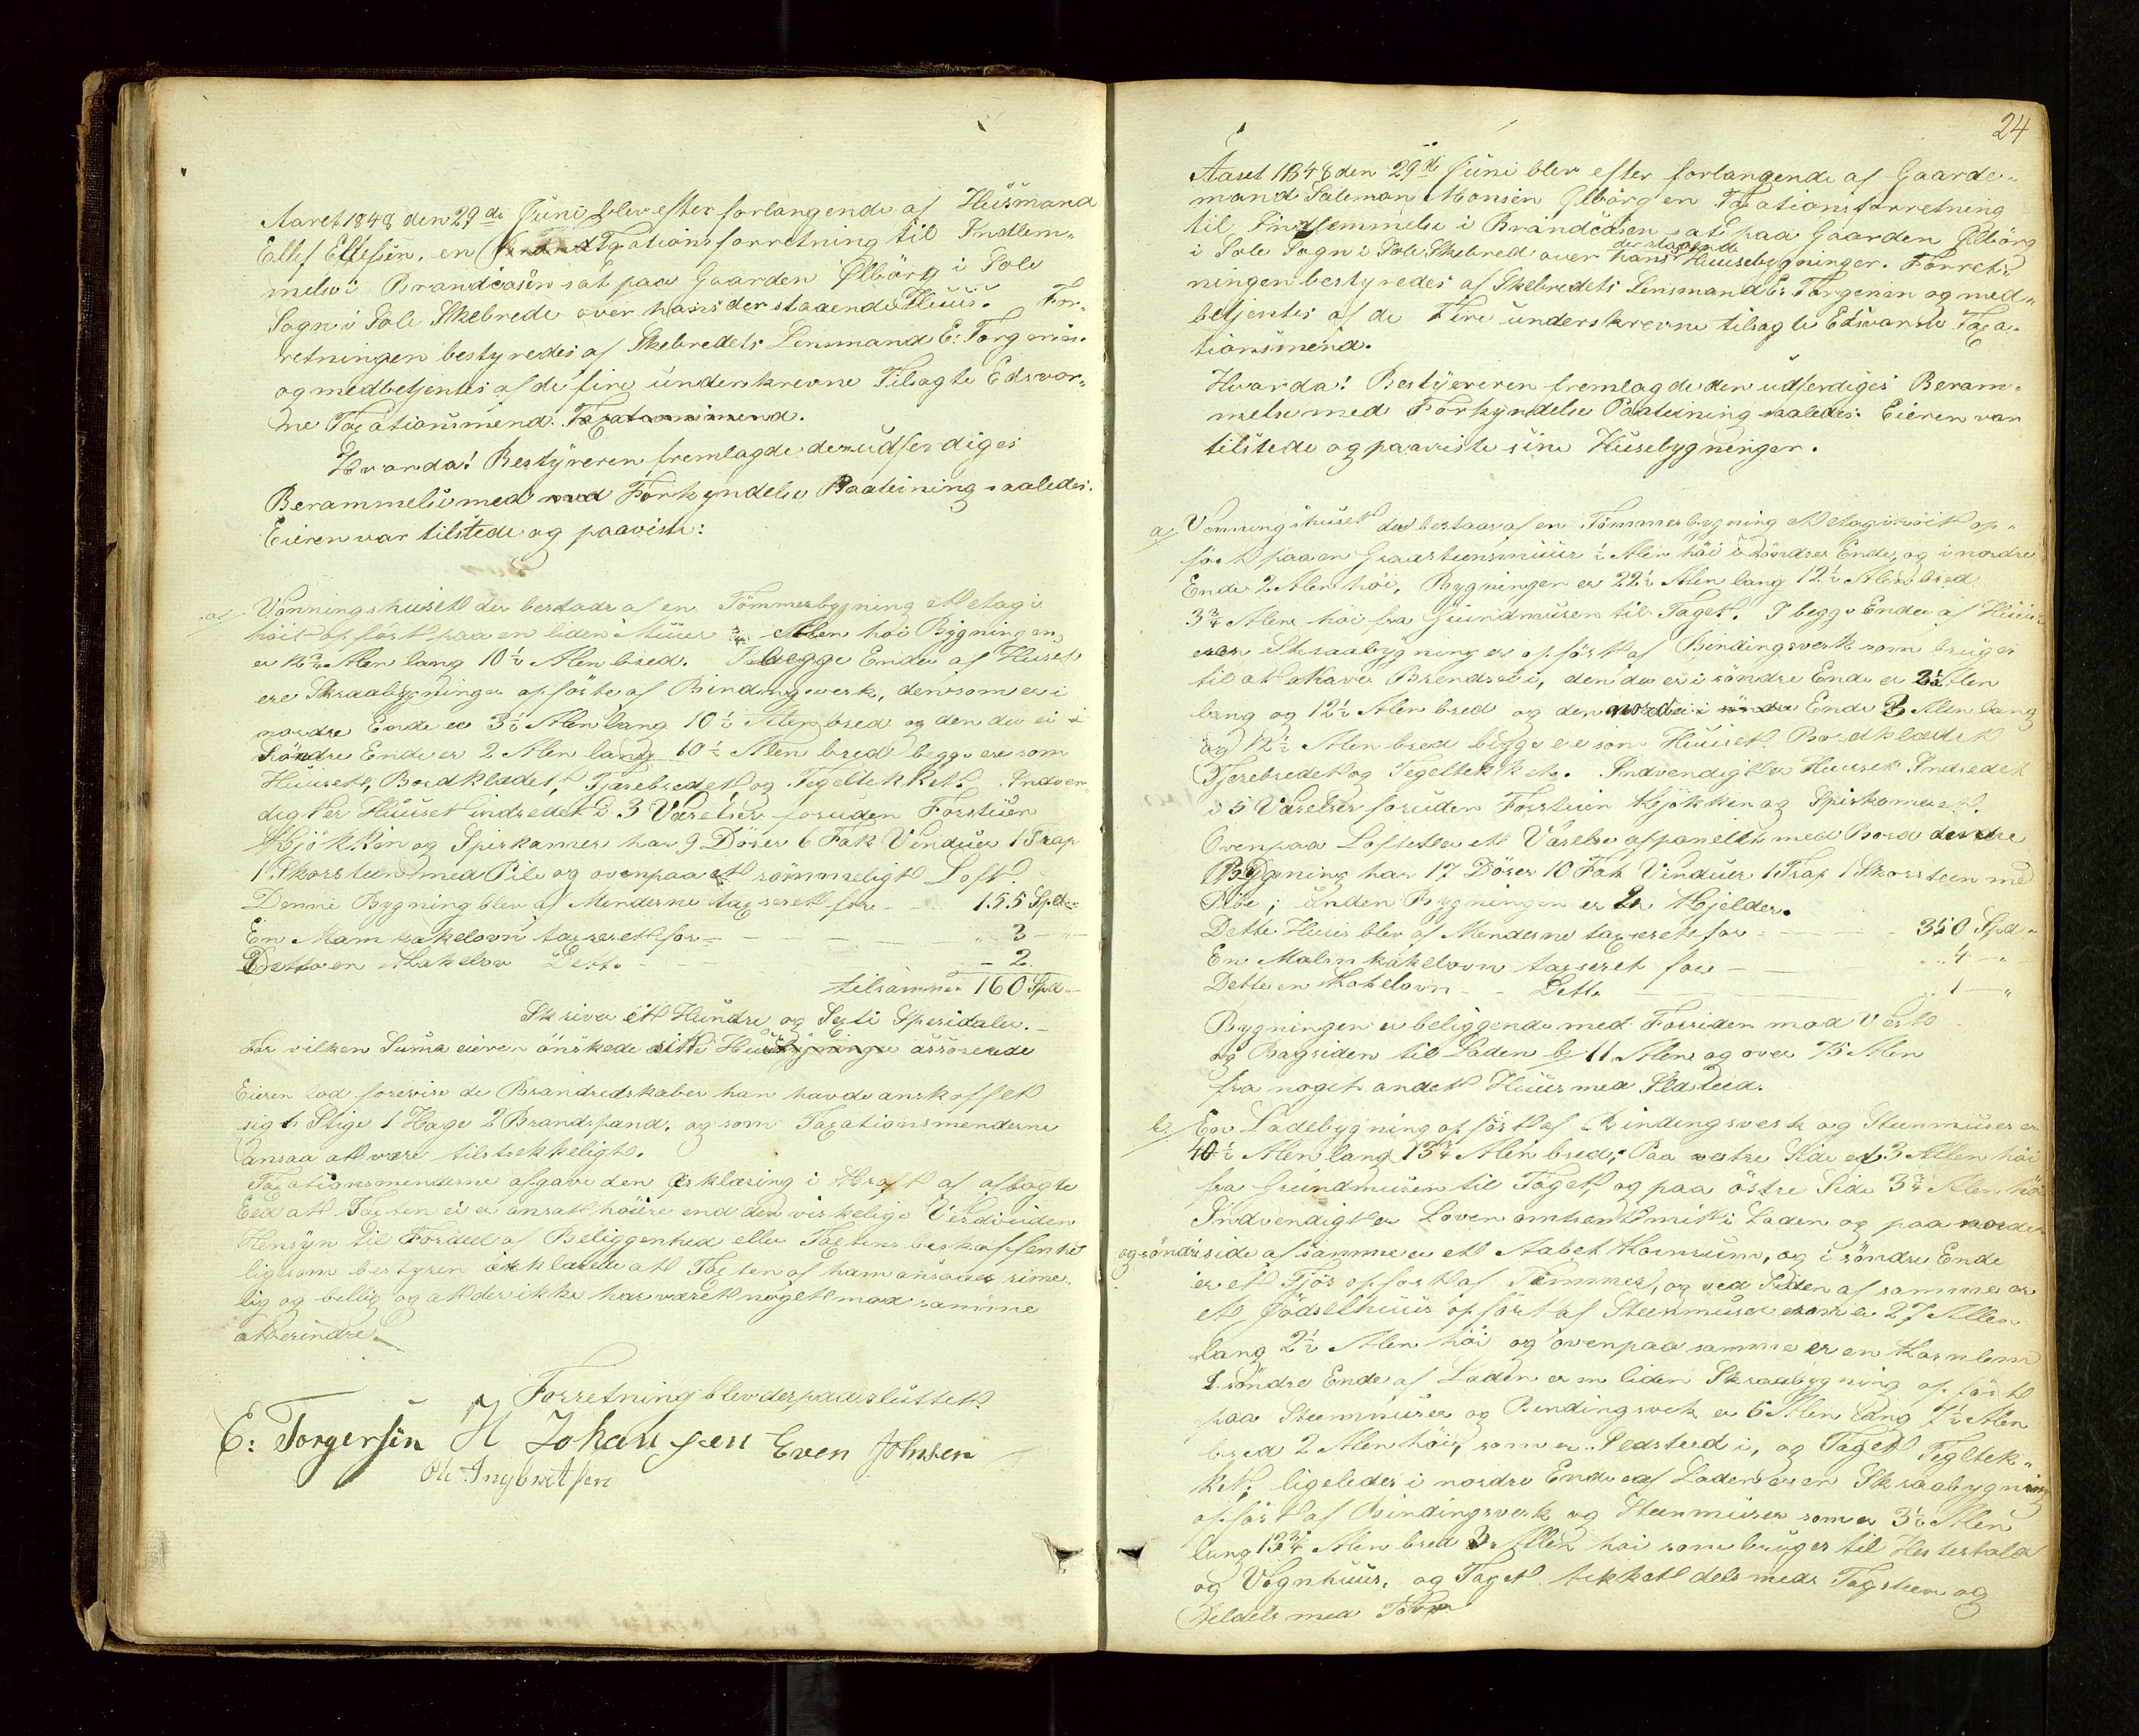 Aaret 1848 den 29de Juni blev efter forlangende af Husmand
Ellef Ellefsen, en Taxationsforretning til Indlem-
melse i Brandcasen sat paa Gaarden Ølbörg i Sole
Sogn i Sole Skebrede over hans der staaende Huus. For-
retningen bestyredes af Skebredets Lensmand E: Torgersen
og medbetjentes af de fire underskrevne Tilsagte Edsvor-
ne Taxationsmend. Taxationsmend.
Hvorda! Bestyreren fremlagde den udferdiges
Berammelse med med Forkyndelse Paateining saaledes.
Eieren var tilstede og paaviste:
a/ Vonningshuset der bestaar af en Tömmerbygning ett etagi
höit opfört paa en liden Muur 3/4 Alen höi Bygningen
er 12 3/4 Alen lang 10 1/2 Alen bred. I begge Ender af Huset
ere Skraabygninger opförte af Bindingverk, den som er i
nordre Ende er 3 1/2 Alen lang 10 1/2 Alen bred og den der er i
Söndre Ende er 2 Alen lang 10 1/2 Alen bred begge ere som
Huuset, Bordkledet, Tjærebredet og Tegeltekket. Indven-
digt er Huuset indredet i 3 Værelser foruden Forstuen
Kjökken og Spiskamer har 9 Dörer 6 Fak Vinduer 1 Trap
1 Skorsteen med Pibe og ovenpaa et römmeligt Loft.
Denne Bygning blev af Menderne taxseret for 155 Spd
En Mam kakelovn taxseret for 3
Detto en Kakelov Detto 2
tilsammen 160 Spd
Skriver ett Hundre og Sexti Spesidaler.
For vilken Suma eieren önskede sitte Huusbygninger assorerede
Eieren lod forevise de Brandredskaber han havde anskaffet
sig 1 Stige 1 Hage 2 Brandspand, og som Taxationsmenderne
ansaa att være tilstrekkeligt.
Taxationsmenderne afgave den erklæring i Kraft af aflagte
Eed att Taxten ei er ansatt höiere end den virkelige Verdi uden
Hensyn til Fordeel af Beliggenhed eller Taxtens beskaffenhed
ligesom bestyren erklærede att Taxten af ham ansaaes rime-
lig og billig og att der ikke har været noget mod samme
at erindre.
Forretning blev derpaa sluttet.
E: Torgersen H Johansen Even Johnsen
Ole Ingbretsen
24
Aaret 1848 den 29de Juni blev efter forlangende af Gaarde-
mand Soleman Monsen Ølbörg en Taxationsforretning
til Indlemmelse i Brandcasen sat paa Gaarden Ølbörg
der staaende
i Sole Sogn i Sole Skebred over hans Huusebygninger. Forret-
ningen bestyredes af Skebredets Lensmand E: Torgersen og med-
betjentes af de Fire underskrevne tilsagte Edsvorne Taxa-
tionsmend.
Hvorda! Bestyreren fremlagde den udferdiges Beram-
melse med Forkyndelse Paateining saaledes: Eieren var
tilstede og paaviste sine Husebygninger.
a/ Vonningshuset der bestaar af en Tömmerbygning ett etagi höit op-
fört paa en Graasteensmuur 1/2 Alen höi i söndrer Ende, og i nordre
Ende 2 Alen höi, Bygningen er 22 1/2 Alen lang 12 1/2 Alen bred
3 3/4 Alen höi fra Grundmuren til Taget. I begge Ender af Huuset
ere Skraabygninger opfört af Bindingsverk som bruges
til at have Brendsel i, den der er i söndre Ende er 3 1/2 Alen
lang og 12 1/2 Alen bred og den nordre i söndre Ende 3 Alen lang
og 12 1/2 Alen bred begge ere som Huuset Bordkledet
Tjerebredet og Tegeltekket. Indvendigt er Huuset Indredet
i 5 Værelser foruden Forstuen Kjökken og Spiskameret.
Ovenpaa Loftet er ett Værelse afpanellt med Bord denne
Bygning har 17 Dörer 10 Fak Vinduer 1 Trap 1 Skorsteen med
Pibe, under Bygningen er 2 Kjelder.
Dette Huus blev af Menderne taxseret for 350 Spd
En Malm kakelovn taxseret for 4
Dette en Kakelovn Dette 1
Bygningen er beliggende med Forsiden mod Vest
og Bagsiden til Laden b/ 11 Alen og over 75 Alen
fra noget andet Huus med Ildsteed.
b/ En Ladebygning opfört af Bindingsverk og Steenmurer er
40 1/2 Alen lang 13 3/4 Alen bred, Paa vestre Side er 3 Allen höi
fra Grundmuren til Taget, og paa östre Side 3 3/4 Alen höi
Indvendigt er Loven omtrent mit i Laden og paa norden
og söndre side af samme er ett Aabet Kornrum, og i söndre Ende
er ett Fjös opfört af Tömmer, og ved Siden af samme er
et Födselhuus opfört af Steenmurer som er 27 Allen
lang 2 1/2 Alen höi og ovenpaa samme er en Kornlem
I söndre Ende af Laden er en liden Skraabygning opfört
paa Steenmurer og Bindingsverk er 6 Alen lang 7 1/2 Alen
bred 2 Alen höi, som er Ildsteed i, og Taget Tegltek-
ket, ligeledes i nordre Ende af Laden er en Skraabygning
opfört af Bindingsverk og Steenmurer som er 3 1/2 Alen
lang 13 3/4 Alen bred 3 Allen höi som bruges til Hestestald
og Vognhuus, og Taget tekket dels meds Tagsteen og
Deldels med Törv